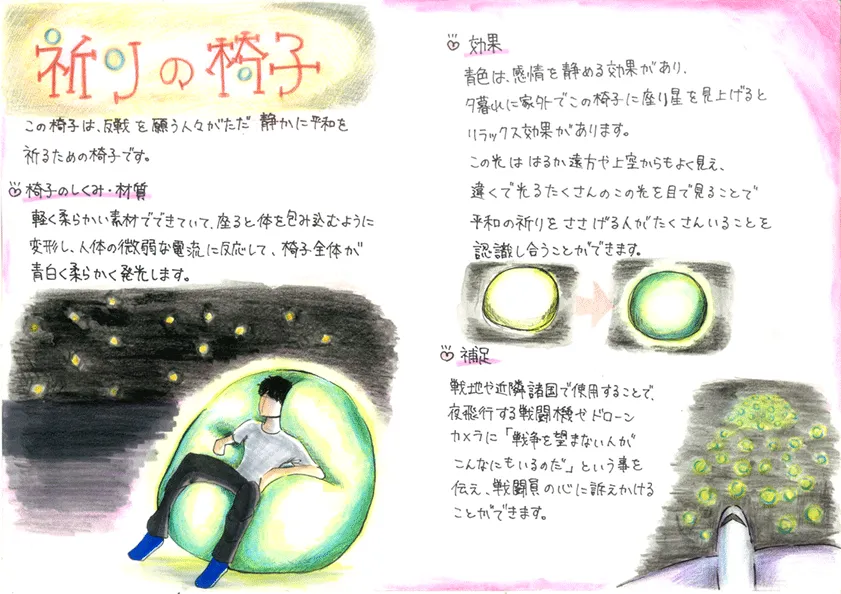 祈りの椅子
この椅子は、反戦を願う人々がただ静かに平和を
祈るための椅子です。
椅子のしくみ・材質
軽く柔らかい素材でできていて、座ると体を包み込むように
変形し、人体の微弱な電流に反応して、椅子全体が
青白く柔らかく発光します。
効果
青色は、感情を静める効果があり、
夕暮れに家外でこの椅子に座り星を見上げると
リラックス効果があります。
この光ははるか遠方や上空からもよく見え、
遠くで光るたくさんのこの光を目で見ることで
平和の祈りをささげる人がたくさんいることを
認識し合うことができます。
補足
戦地や近隣諸国で使用することで、
夜飛行する戦闘機やドローン
カメラに「戦争を望まない人が
こんなにもいるのだ」という事を
伝え、戦闘員の心に訴えかける
ことができます。